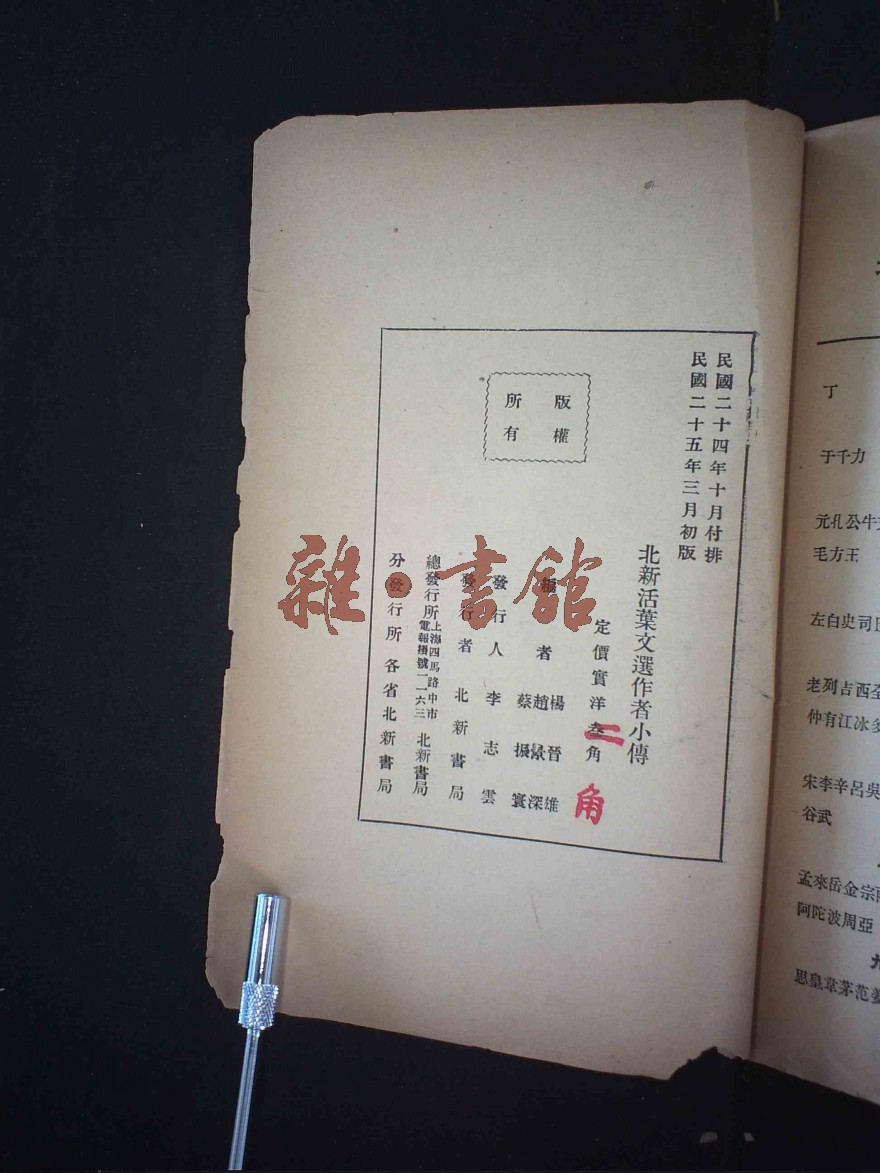 民國二十四年十月付排
民國二十五年三月初版
北新活葉文選作者小傳
定價實洋叁角
二角
編者
楊晉雄
趙景深
蔡振寰
發行人 李志雲
發行者 北新書局
總發行所 上海四馬路中市 電報掛號一一六三 北新書局
分發行所 各省北新書局
版權
所有
雜·書館
丁
于千力
元孔公牛
毛方王
左白史司
老列吉西
仲有江冰
宋李辛呂吳
谷武
孟來岳金宗
阿陀波周亞
思皇韋茅范姜